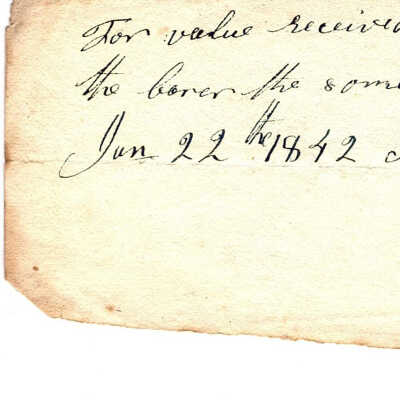 For value received
the borer the some
Jan 22 the 1842